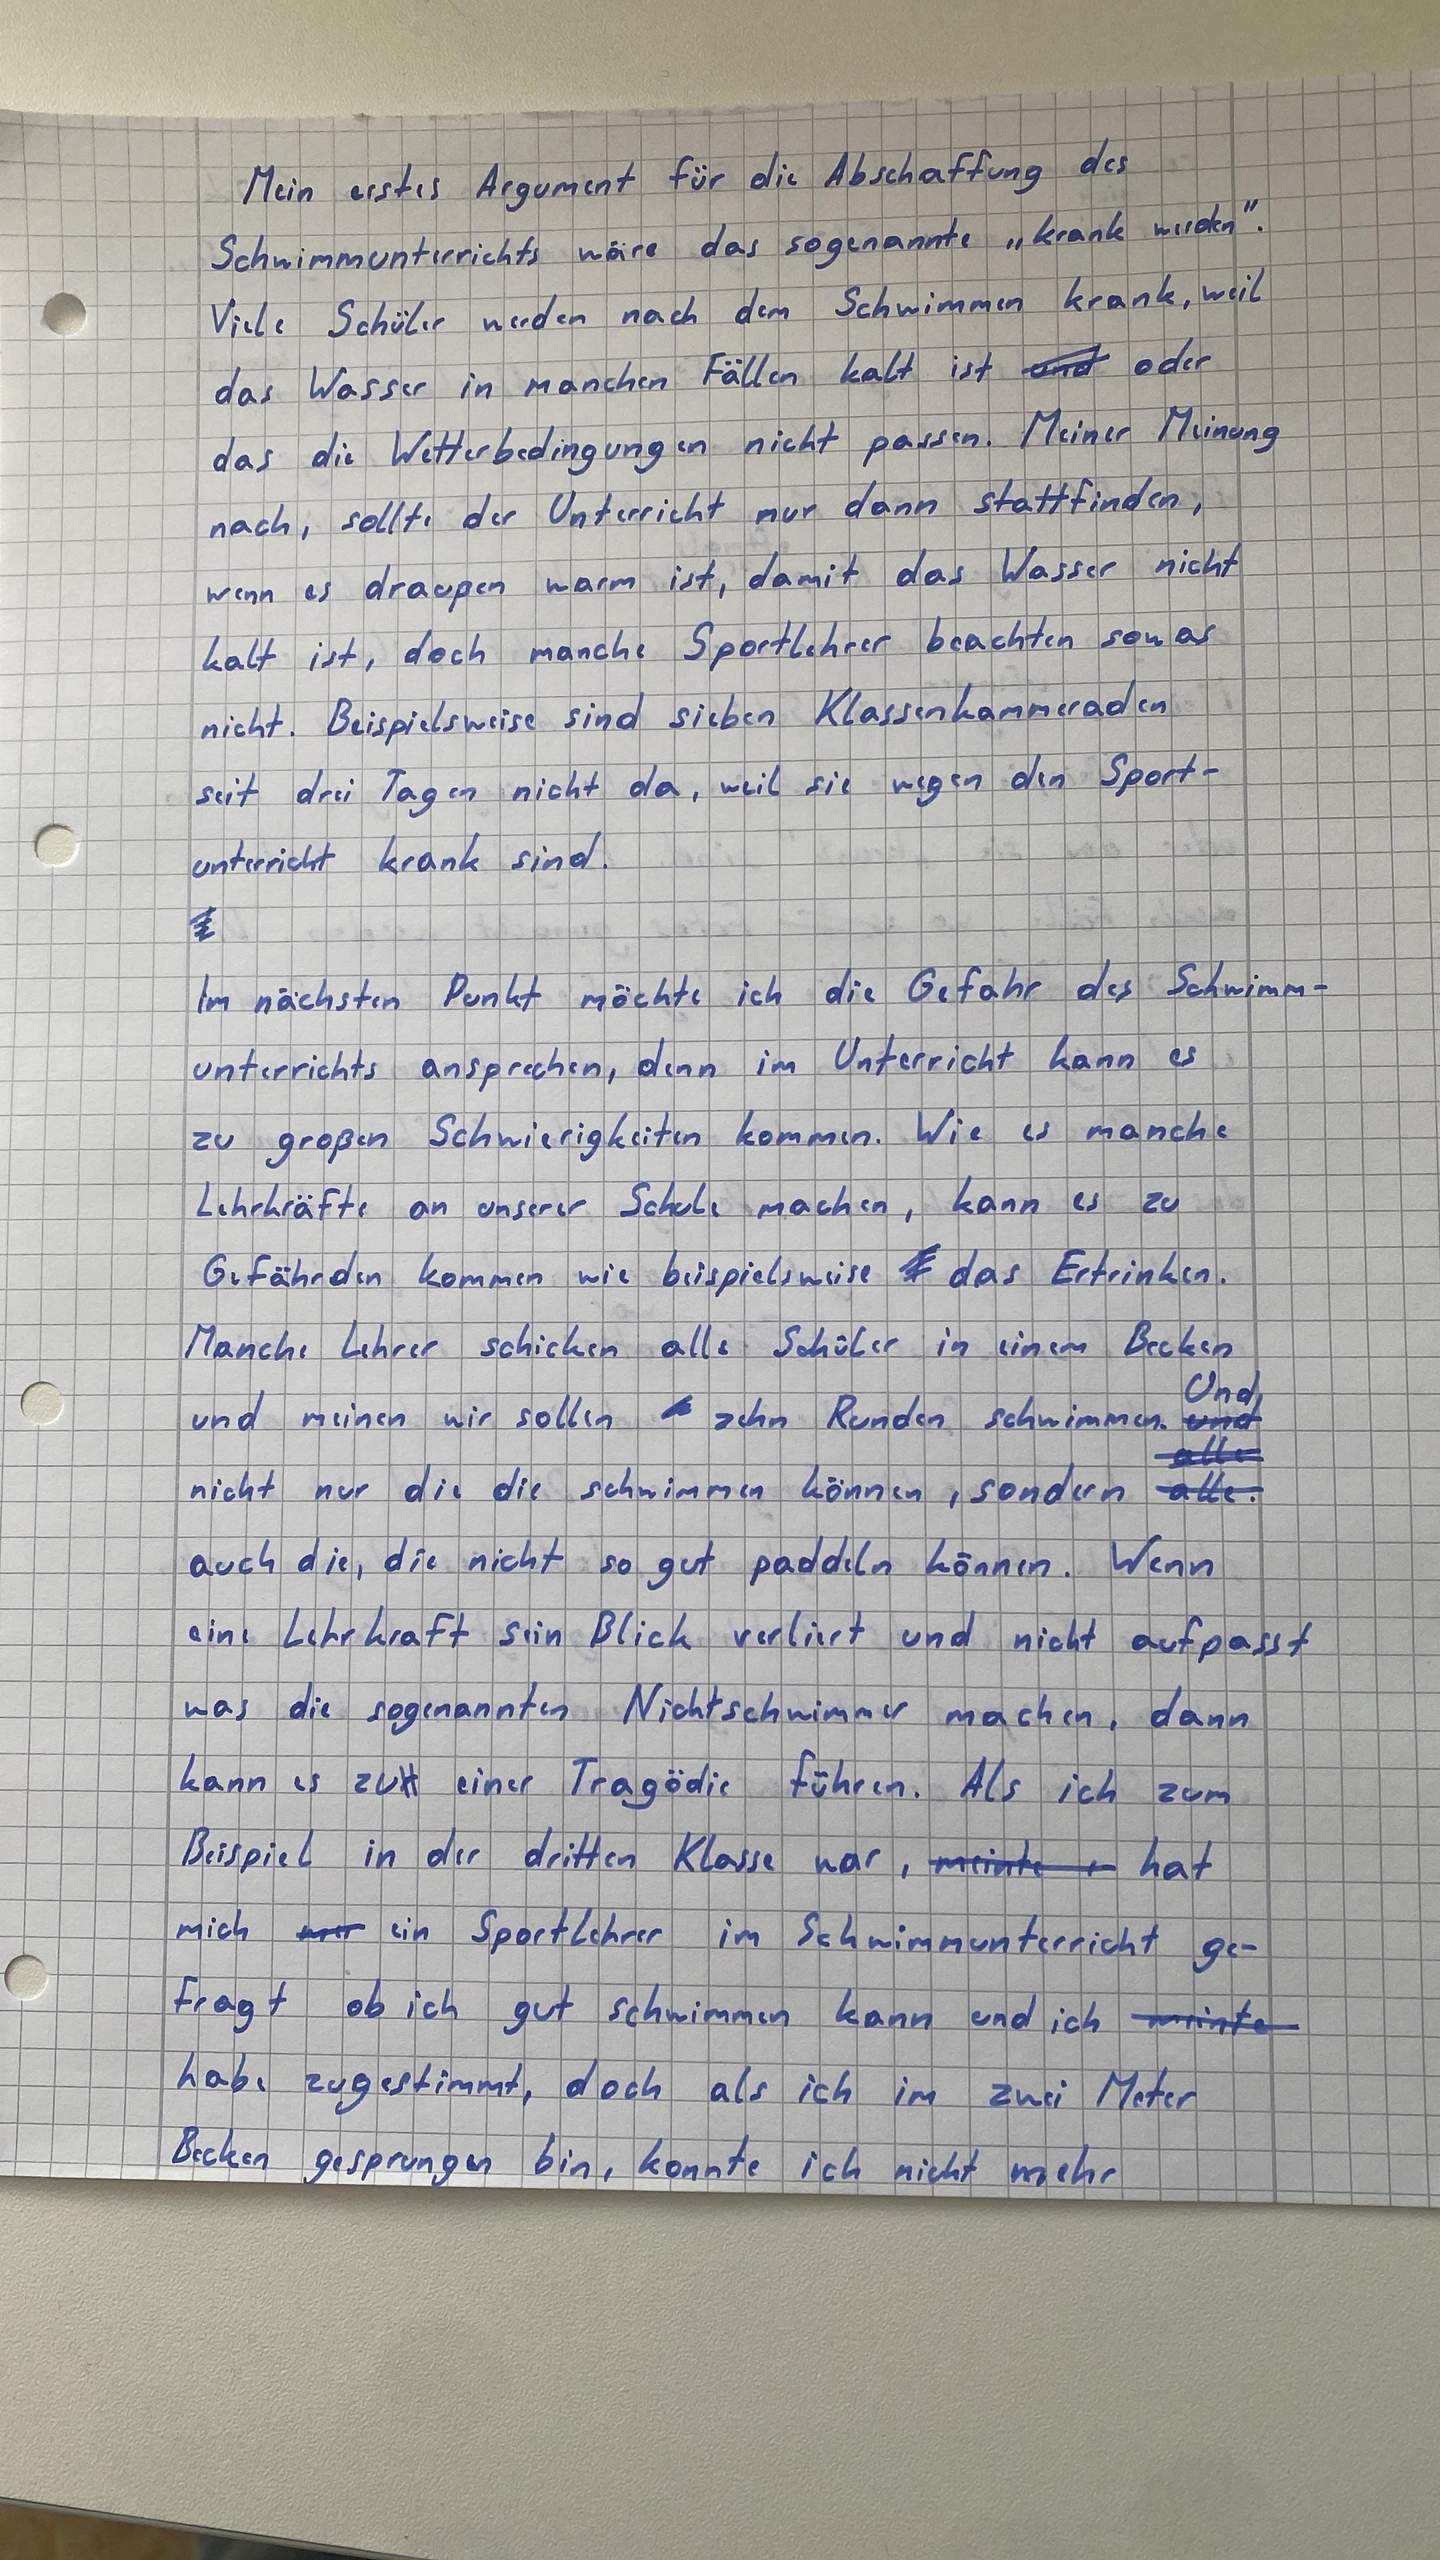 Mein erstes Argument für die Abschaffung des
Schwimmunterrichts wäre das sogenannte „krank werden".
Viele Schüler werden nach dem Schwimmen krank, weil
das Wasser in manchen Fällen kalt ist und oder
das die Wetterbedingungen nicht passen. Meiner Meinung
nach, sollte der Unterricht nur dann stattfinden,
wenn es draußen warm ist, damit das Wasser nicht
kalt ist, doch manche Sportlehrer beachten sowas
nicht. Beispielsweise sind sieben Klassenkammeraden
seit drei Tagen nicht da, weil sie wegen den Sport-
unterricht krank sind.
Im nächsten Punkt möchte ich die Gefahr des Schwimm-
unterrichts ansprechen, denn im Unterricht kann es
zu großen Schwierigkeiten kommen. Wie es manche
Lehrkräfte an unserer Schule machen, kann es zu
Gefährden kommen wie beispielsweise das Ertrinken.
Manche Lehrer schicken alle Schüler in einem Becken
Und
und meinen wir sollen zehn Runden schwimmen. und
alle
nicht nur die die schwimmen können, sondern alle.
auch die, die nicht so gut paddeln können. Wenn
eine Lehrkraft sein Blick verliert und nicht aufpasst
was die sogenannten Nichtschwimmer machen, dann
kann es zu einer Tragödie führen. Als ich zum
Beispiel in der dritten Klasse war, meinte hat
mich ein Sportlehrer im Schwimmunterricht ge-
fragt ob ich gut schwimmen kann und ich meinte
habe zugestimmt, doch als ich im zwei Meter
Becken gesprungen bin, konnte ich nicht mehr